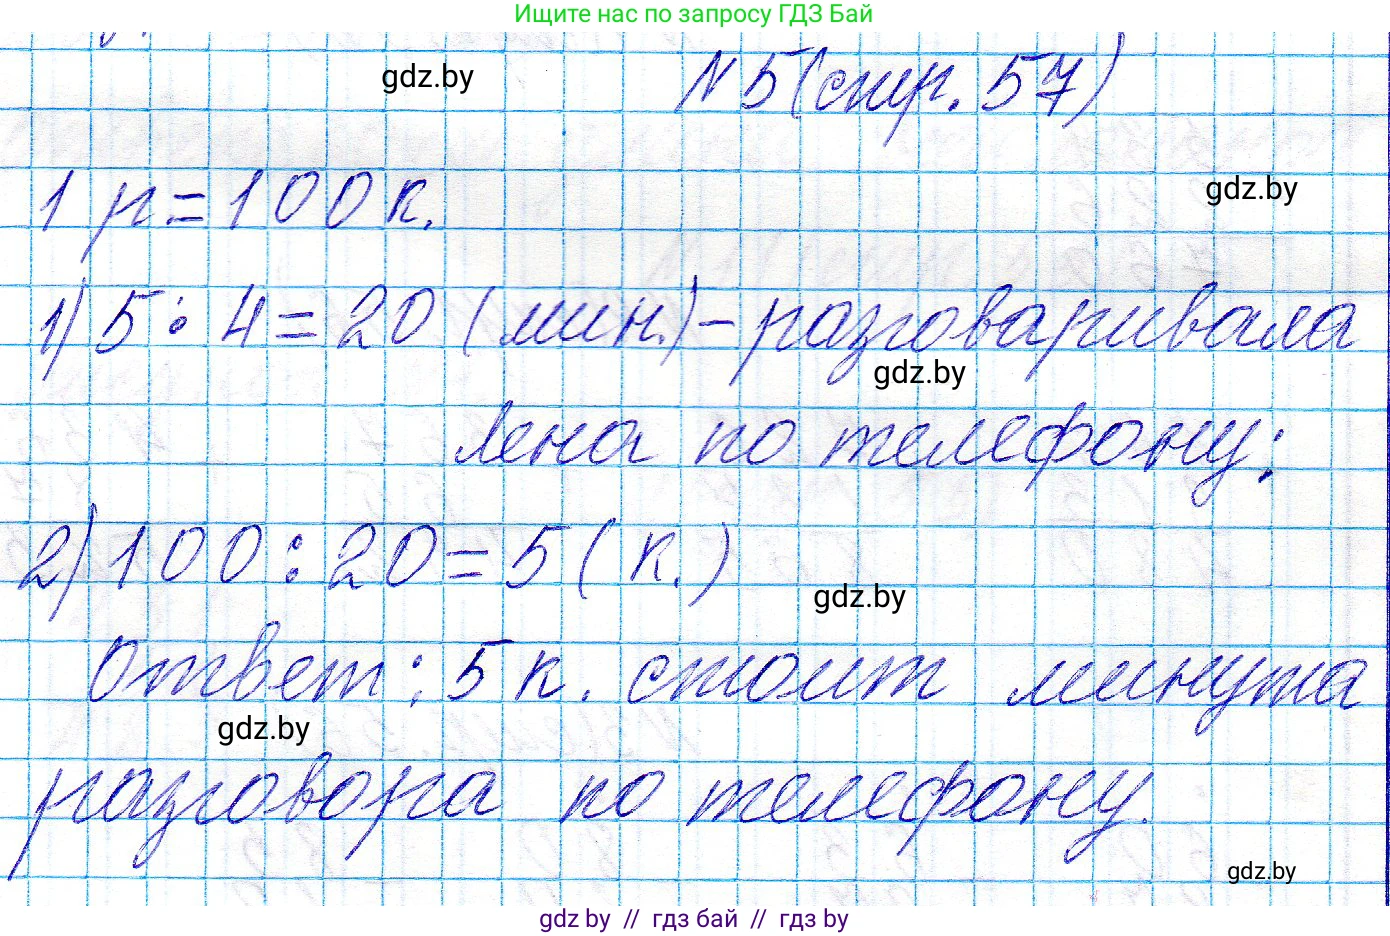 Ищите нас по запросу ГДЗ Бай
gdz.by
N 5 (стр. 57)
gdz.by
1 р = 100 к.
1) 5 : 4 = 20 (мин.) – разговаривала
gdz.by
Лена по телефону;
2) 100 : 20 = 5 (к.)
gdz.by
Ответ: 5 к. стоит минута
gdz.by
разговора по телефону.
gdz.by
gdz by // гдз бай // гдз by